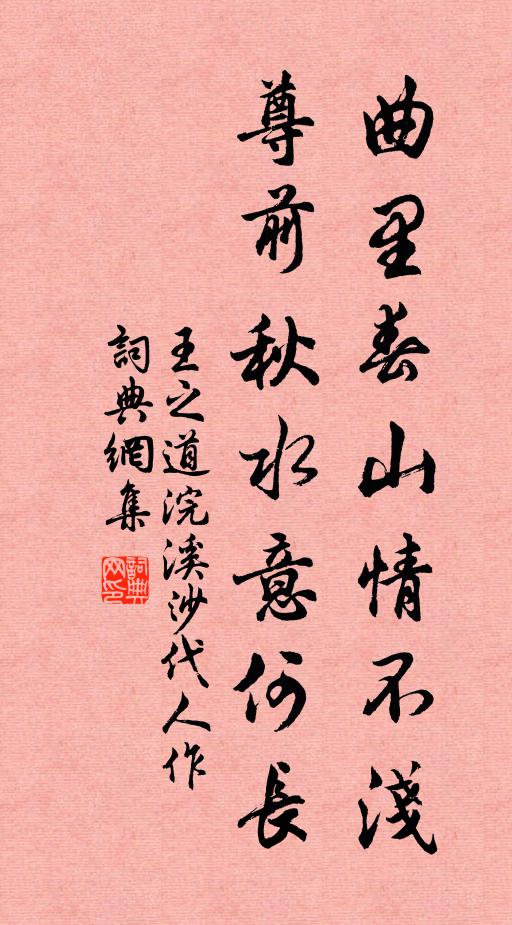 曲里春山情不淺
尊前秋水意何長
王之道浣溪沙代人作
詞典網集
詞典网印